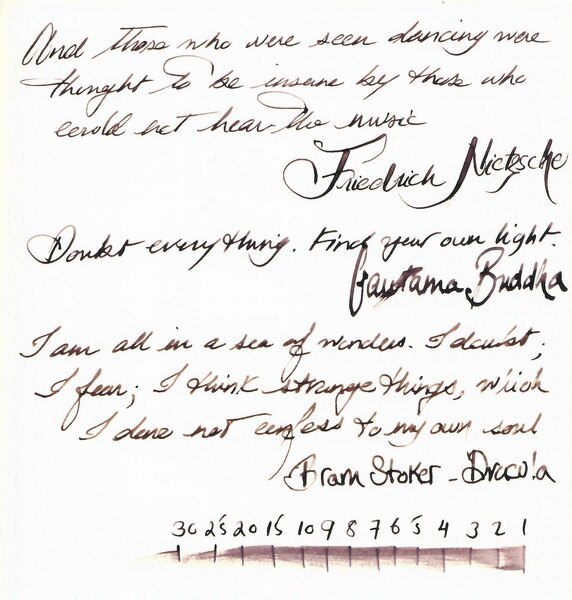 And those who were seen dancing were
thought to be insane by those who
could not hear the music
Friedrich Nietzsche
Doubt everything. Find your own light.
Gautama Buddha
I am all in a sea of wonders. I doubt;
I fear; I think strange things, which
I dare not confess to my own soul
Bram Stoker - Dracula
30 25 20 15 10 9 8 7 6 5 4 3 2 1